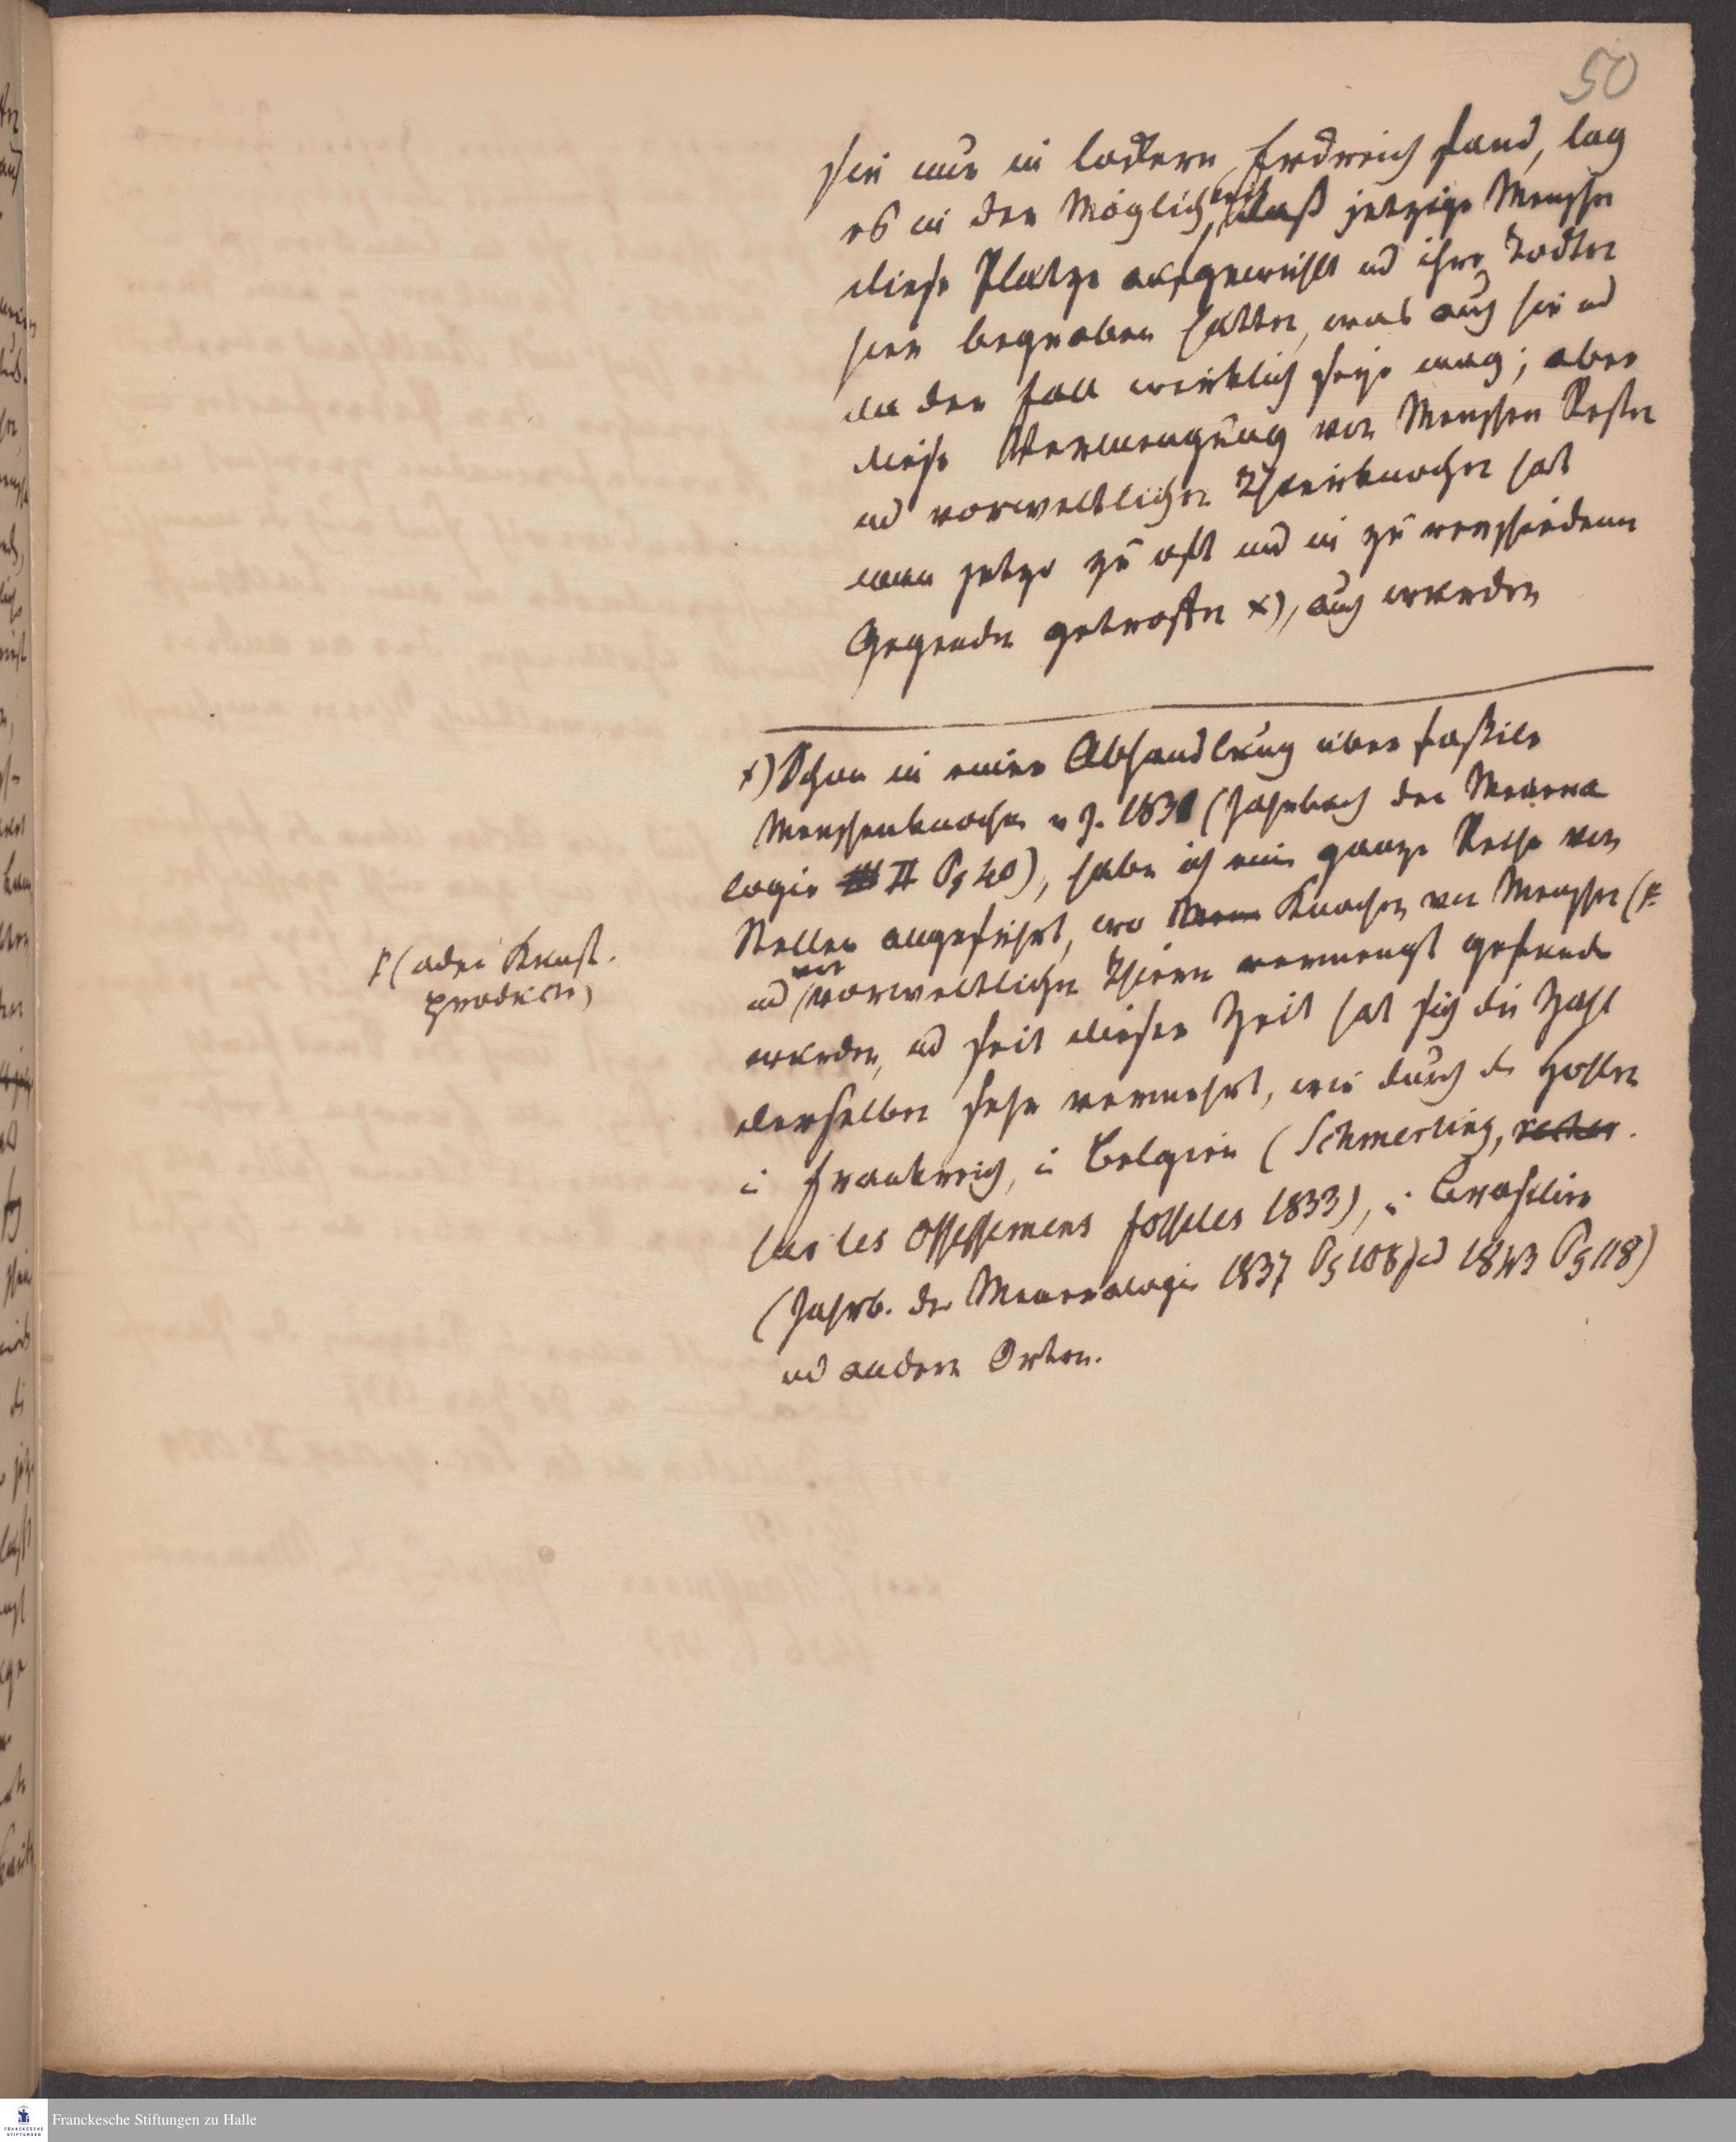 50
sie nur in lockern Erdreich fand, lag
es in der Möglichkeit, daß jetzige Menschen
diese Plätze ausgewühlt und ihre Todten
hier begraben hätten, was auch hie und
da der Fall wirklich seyn mag; aber
diese Vermengung von Menschen Resten
und vorweltlichen Thierknochen hat
man jetzo zu oft und in zu verschiedenen
Gegenden getroffen x), auch werden
x) Schon in einer Abhandlung über foßile
Menschenknochen v. J. 1831 (Jahrbuch der Minera
logie II Pg 40), habe ich eine ganze Reihe von
Stellen angeführt, wo Knochen von Menschen (F
F (oder Kunst-
producte)
und von vorweltlichen Thieren vermengt gefunden
wurden, und seit dieser Zeit hat sich die Zahl
derselben sehr vermehrt, wie durch die Höhlen
in Frankreich, in Belgien (Schmerling, recher.
sur les Ossessemens fossiles 1833), in Brasilien
(Jahrb. der Mineralogie 1837 Pg 108) und 1843 Pg 118)
und andern Orten.
Franckesche Stiftungen zu Halle